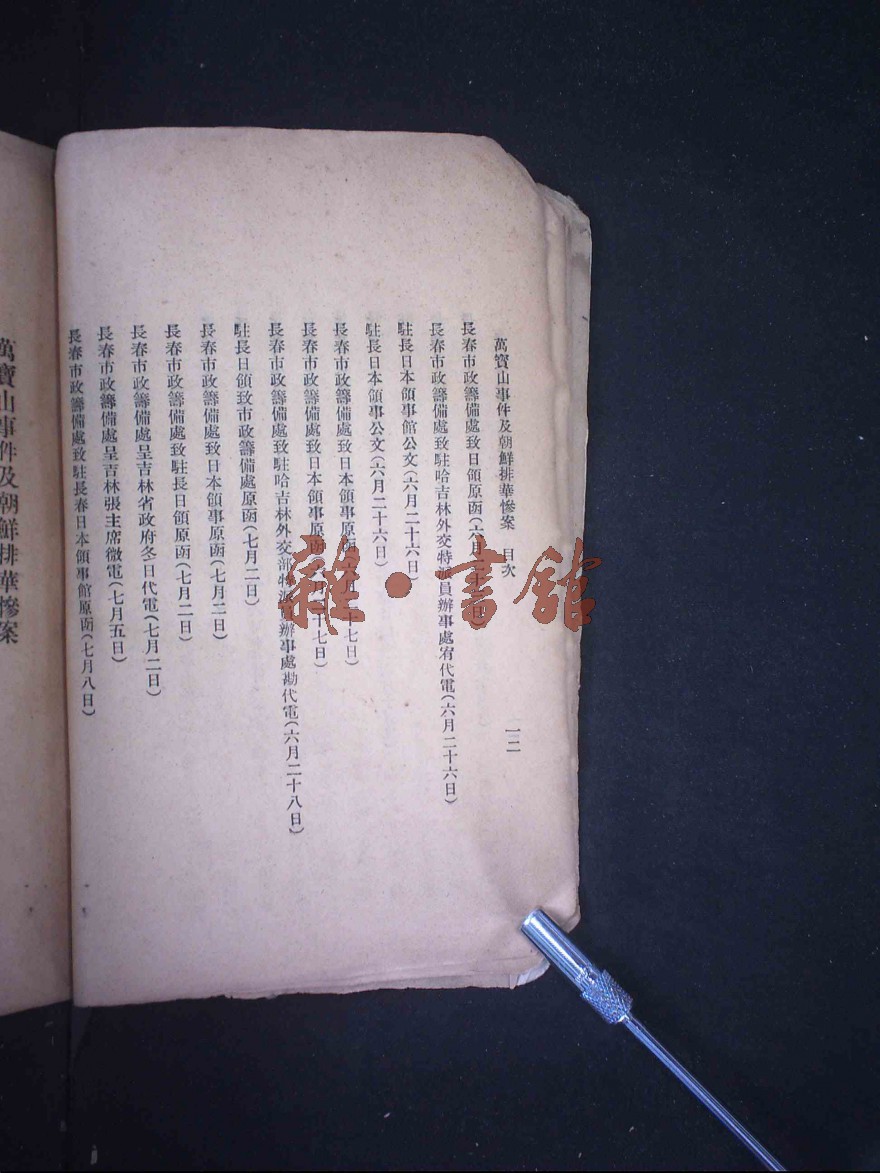 萬寶山事件及朝鮮排華慘案　目次
一二
長春市政籌備處致日領原函(六月二十六日)
長春市政籌備處致駐哈吉林外交特派員辦事處宥代電(六月二十六日)
駐長日本領事館公文(六月二十六日)
駐長日本領事公文(六月二十六日)
長春市政籌備處致日本領事原函(六月二十七日)
長春市政籌備處致日本領事原函(六月二十七日)
長春市政籌備處致駐哈吉林外交部特派員辦事處勘代電(六月二十八日)
駐長日領致市政籌備處原函(七月二日)
長春市政籌備處致日本領事原函(七月二日)
長春市政籌備處致駐長日領原函(七月二日)
長春市政籌備處呈吉林省政府冬日代電(七月二日)
長春市政籌備處呈吉林張主席微電(七月五日)
長春市政籌備處致駐長春日本領事館原函(七月八日)
萬寶山事件及朝鮮排華慘案
雜·書館